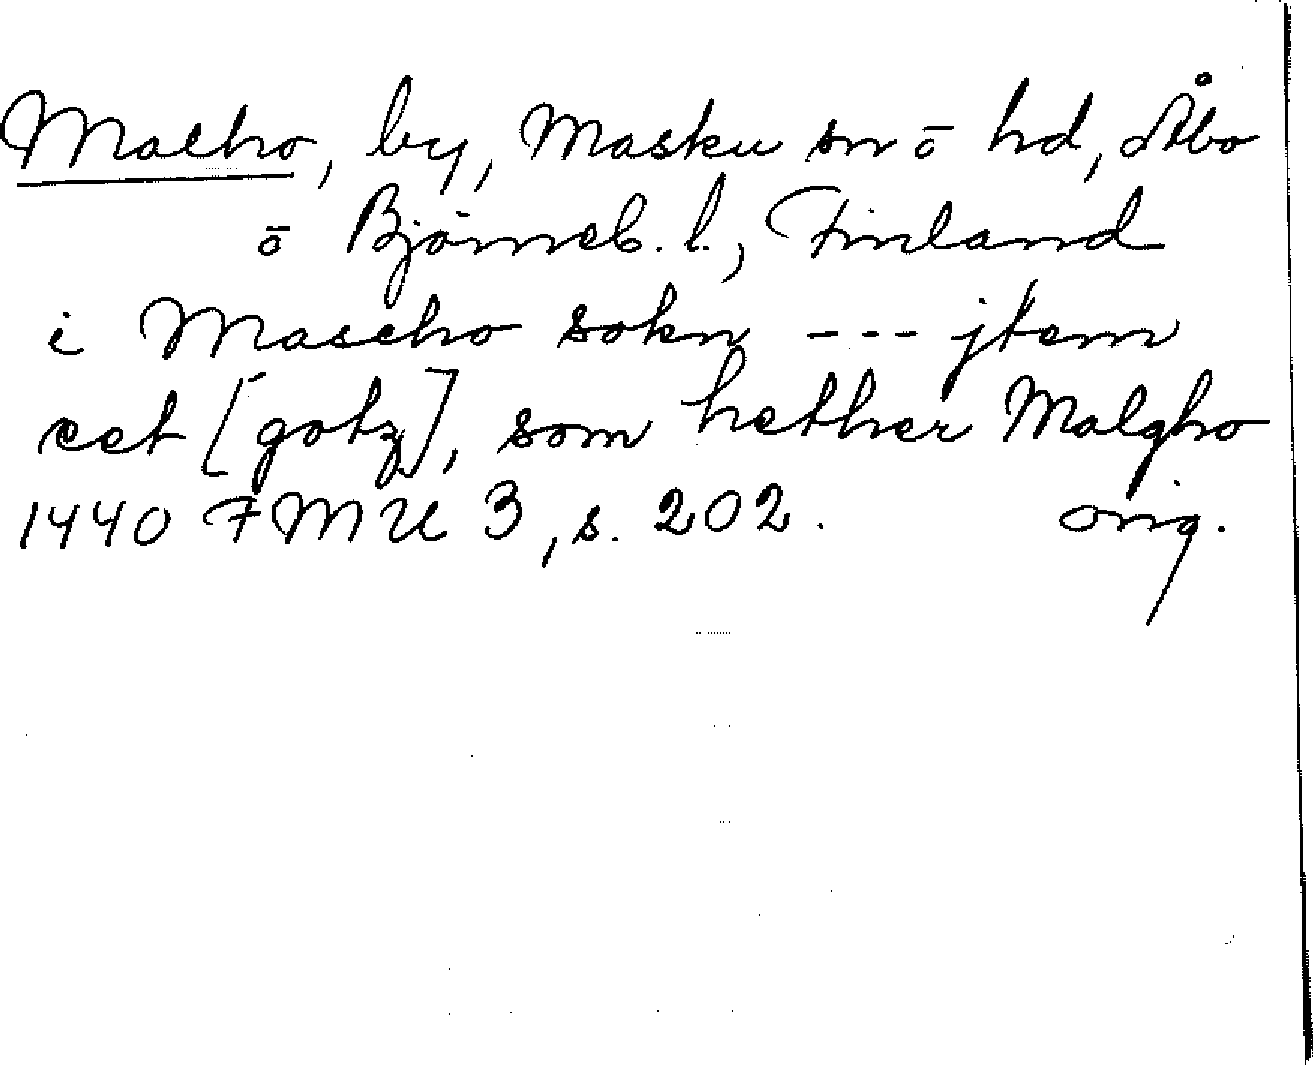 Maelno, by, Masku sn ō hd, Åbo
ō Björneb. l., Finland
i Mascho sokn --- jtem
eet [gotz], som hether Malgho
1440 FMU 3, s. 202. orig.